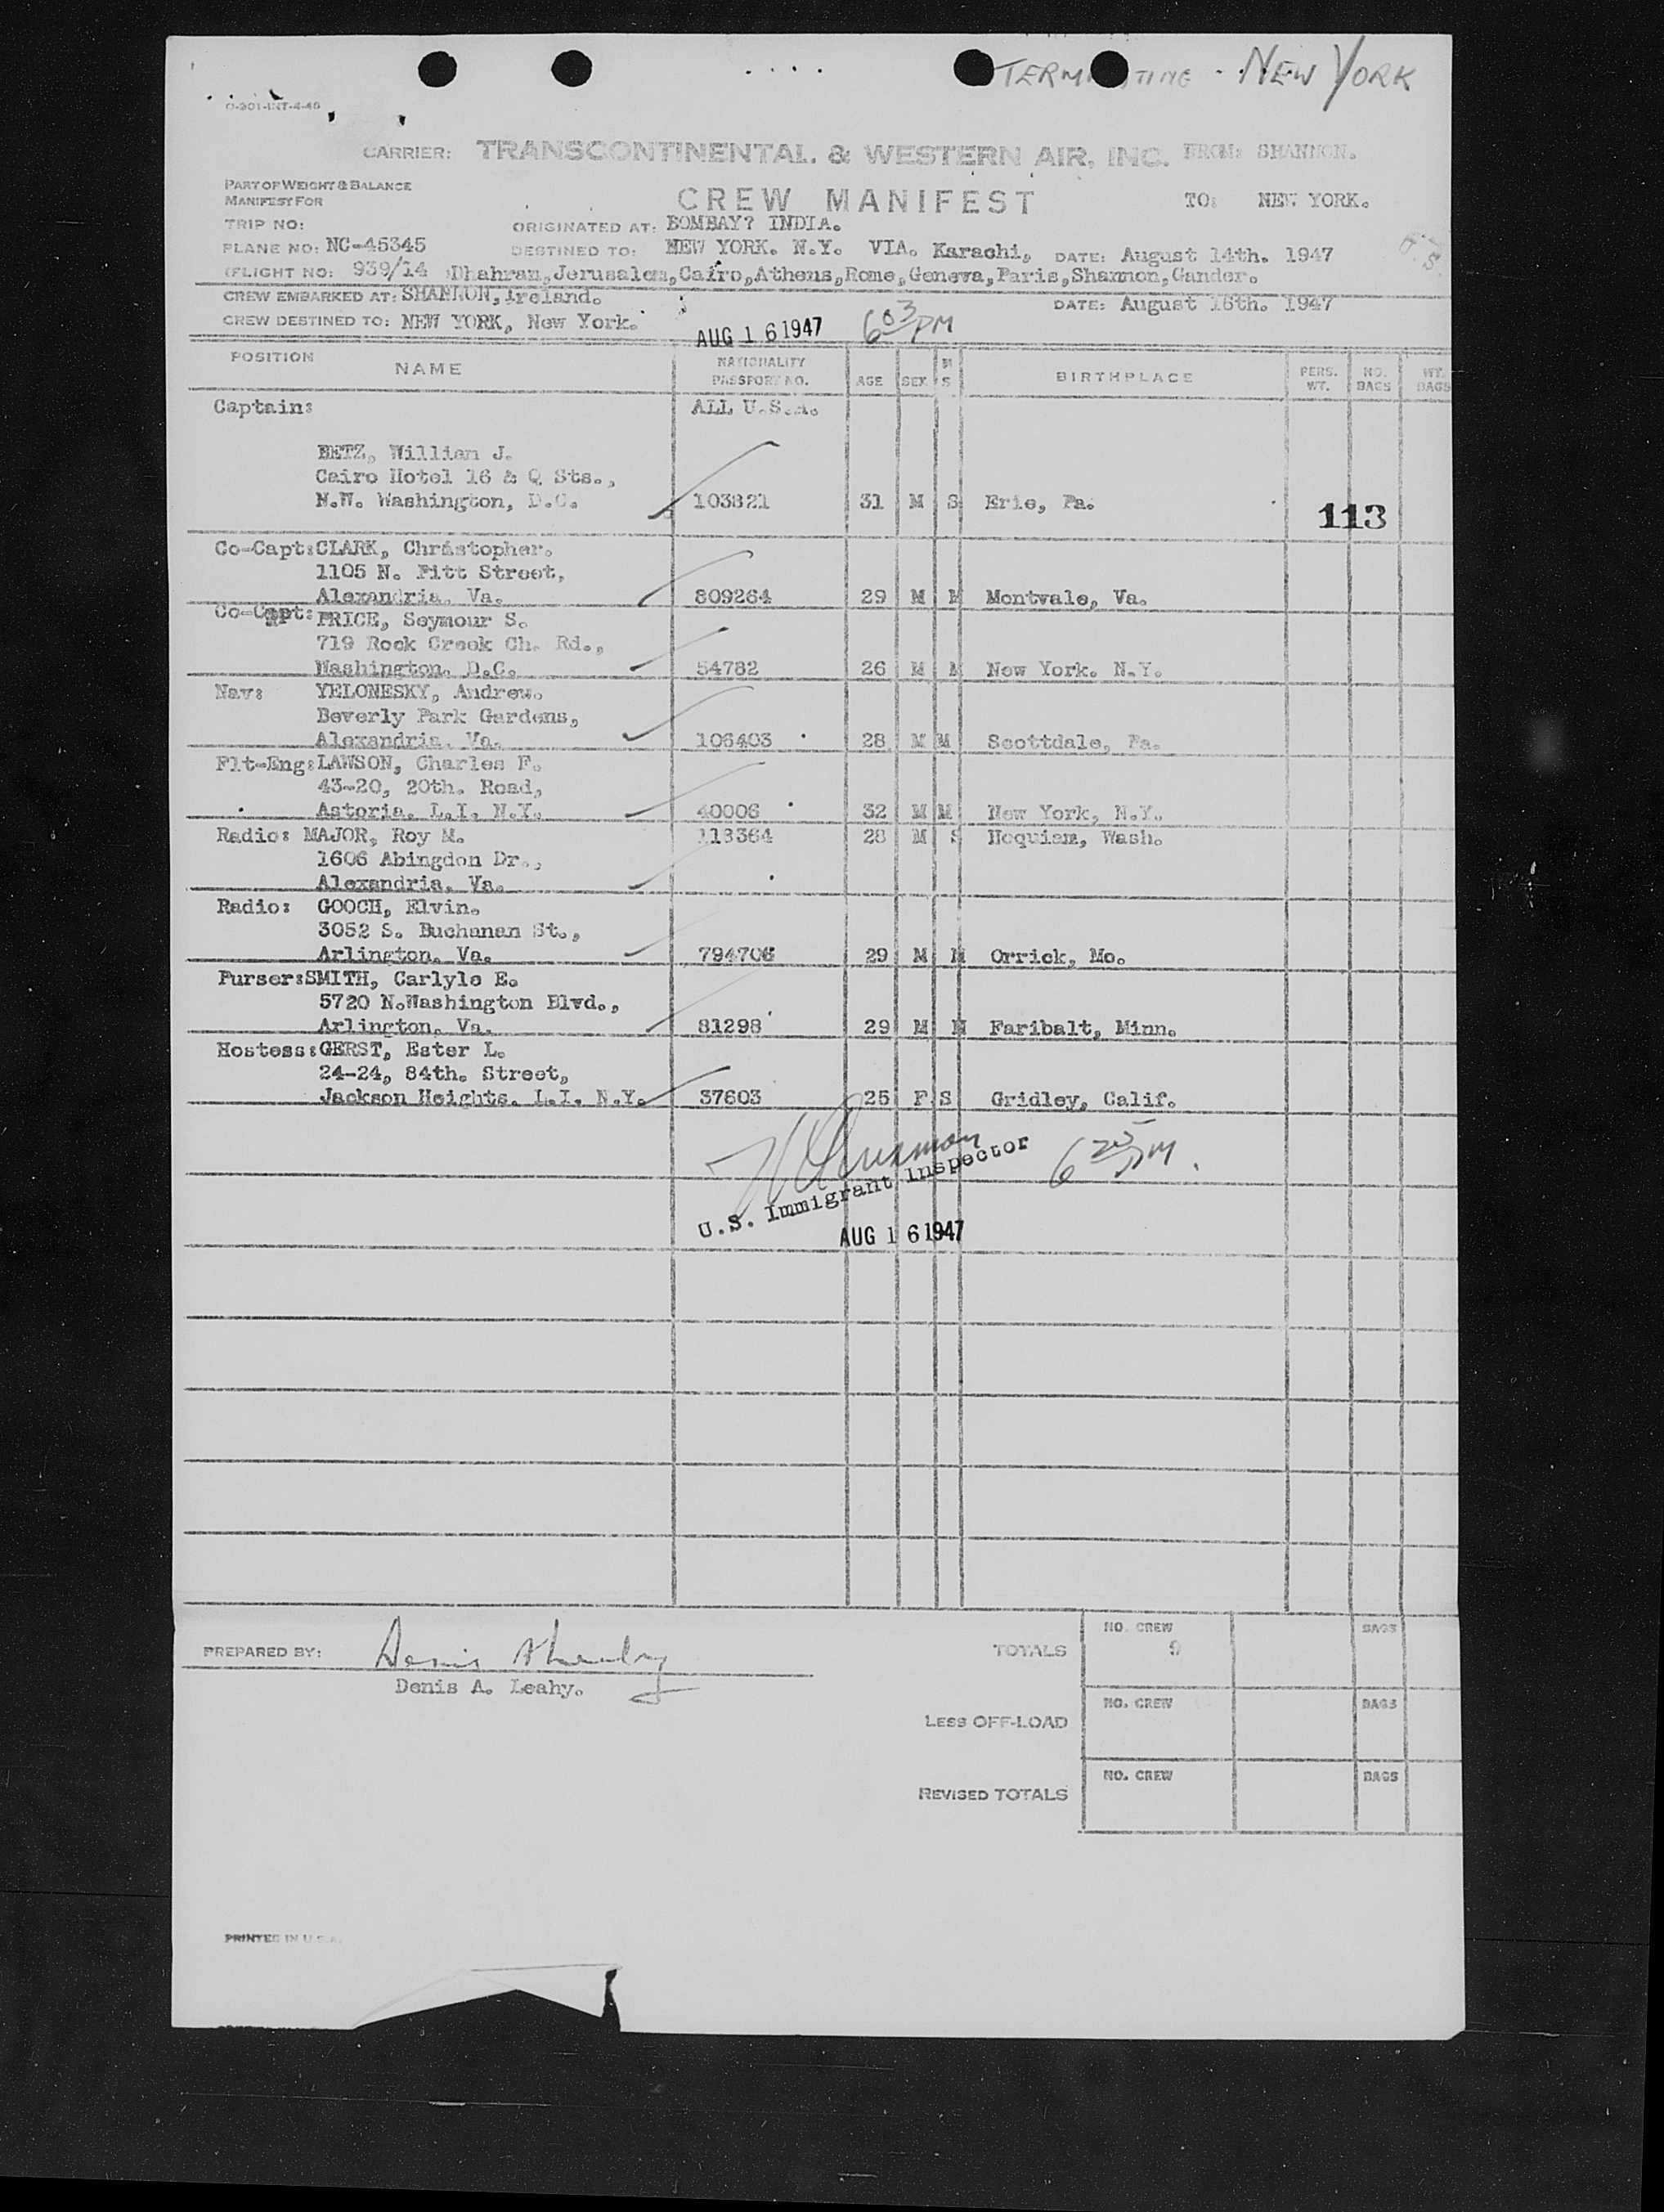 TERMI TING - NEW YORK
O-201-INT-4-46
CARRIER: TRANSCONTINENTAL & WESTERN AIR, INC. FROM: SHANNON.
PART OF WEIGHT & BALANCE
MANIFEST FOR
CREW MANIFEST TO: NEW YORK.
TRIP NO: ORIGINATED AT: BOMBAY? INDIA.
PLANE NO: NC-45345 DESTINED TO: NEW YORK. N.Y. VIA. Karachi, DATE: August 14th. 1947
FLIGHT NO: 939/14 Dhahran,Jerusalem,Cairo,Athens,Rome,Geneva,Paris,Shannon,Gander.
CREW EMBARKED AT: SHANNON, Ireland. DATE: August 16th. 1947
CREW DESTINED TO: NEW YORK, New York.
AUG 16 1947 6 03 PM
POSITION NAME NATIONALITY PASSPORT NO. AGE SEX M S BIRTHPLACE PERS. WT. NO. BAGS WT. BAGS
Captain: ALL U.S.A.
BETZ, William J.
Cairo Hotel 16 & Q Sts.,
N.W. Washington, D.C. 103821 31 M S Erie, Pa. 113
Co-Capt:CLARK, Christopher.
1105 N. Pitt Street,
Alexandria. Va. 809264 29 M M Montvale, Va.
Co-Capt: PRICE, Seymour S.
719 Rock Creek Ch. Rd.,
Washington. D.C. 54782 26 M M New York. N.Y.
Nav: YELONESKY, Andrew.
Beverly Park Gardens,
Alexandria. Va. 106403 28 M M Scottdale, Pa.
Flt-Eng:LAWSON, Charles F.
43-20, 20th. Road,
Astoria. L.I. N.Y. 40006 32 M M New York, N.Y.
Radio: MAJOR, Roy M. 113364 28 M S Hoquiam, Wash.
1606 Abingdon Dr.,
Alexandria. Va.
Radio: GOOCH, Elvin.
3052 S. Buchanan St.,
Arlington. Va. 794706 29 M M Orrick, Mo.
Purser:SMITH, Carlyle E.
5720 N.Washington Blvd.,
Arlington. Va. 81298 29 M M Faribalt, Minn.
Hostess:GERST, Ester L.
24-24, 84th. Street,
Jackson Heights. L.I. N.Y. 37603 25 F S Gridley, Calif.
6 25 PM.
U.S. Immigrant Inspector
AUG 16 1947
PREPARED BY: Denis A Leahy
Denis A. Leahy.
TOTALS NO. CREW 9 BAGS
LESS OFF-LOAD NO. CREW BAGS
REVISED TOTALS NO. CREW BAGS
PRINTED IN U.S.A.